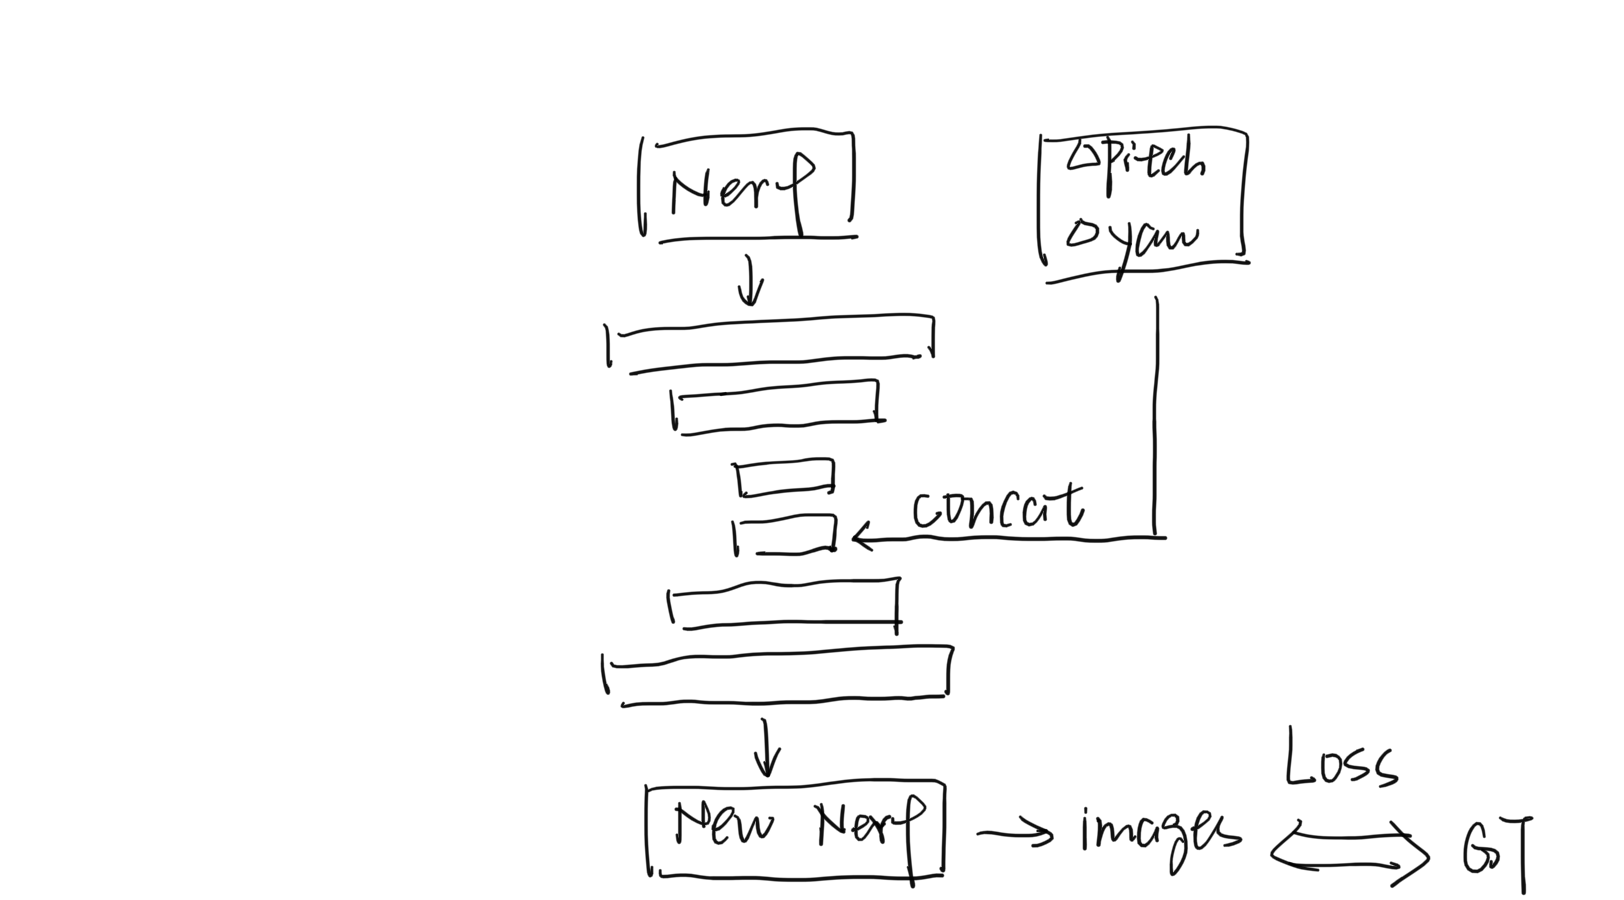 Nerf
Δpitch
Δyaw
concat
New Nerf
images
Loss
GT